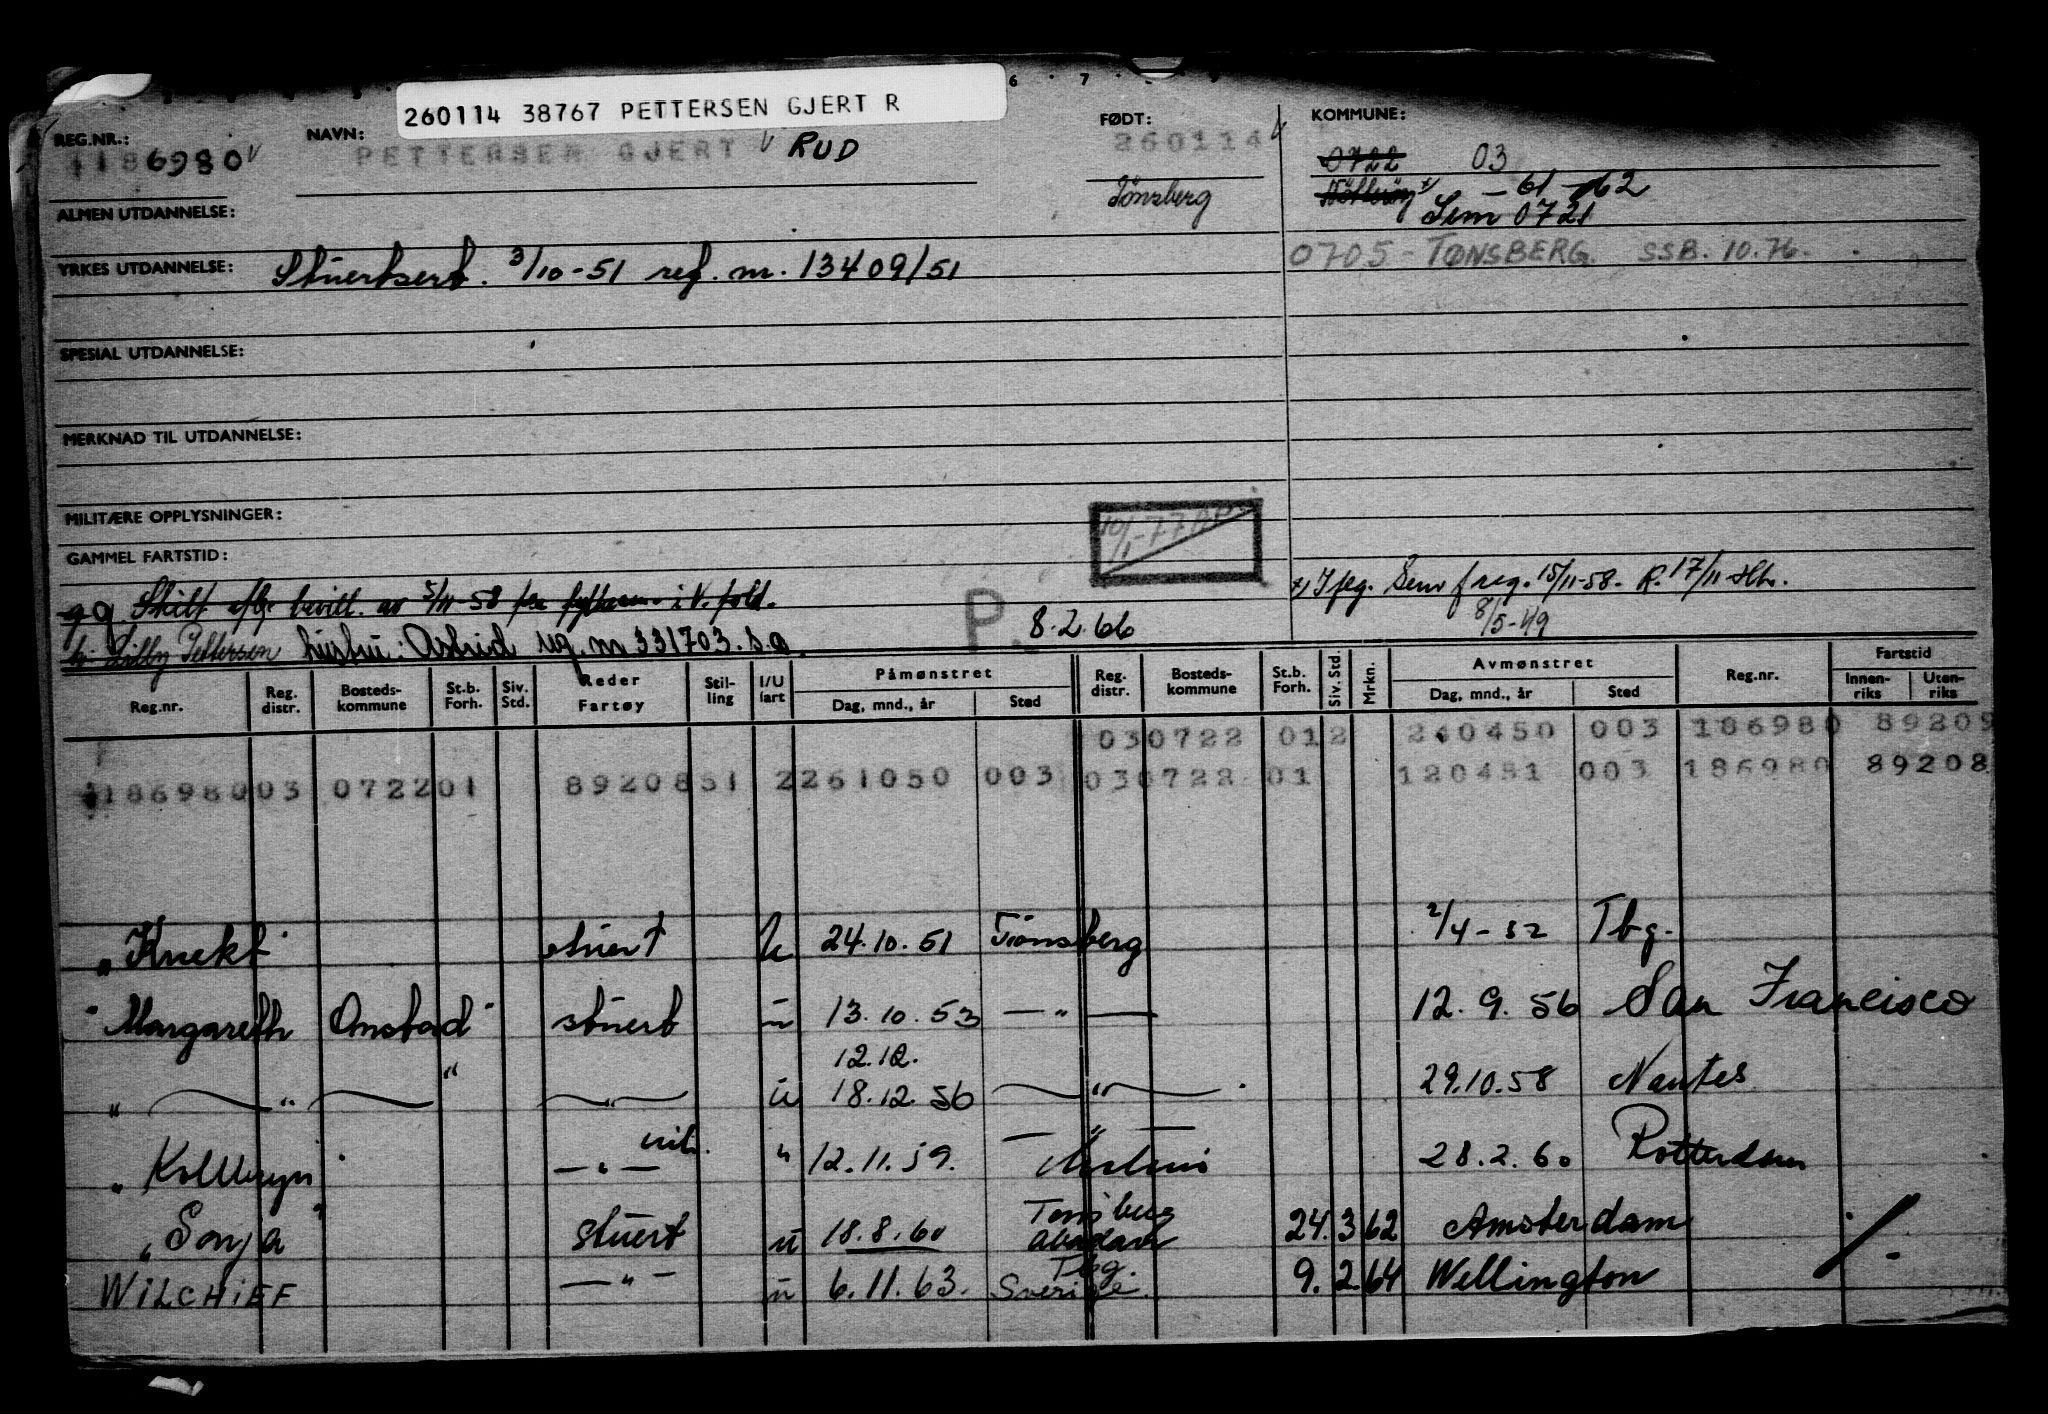 260114 38767 PETTERSEN GJERT R
6 7
REG.NR.: 1186980 NAVN: PETTERSEN GJERT RUD FØDT: 260114 KOMMUNE: 0722 03
Tönsberg -61-62
Sem 0721
ALMEN UTDANNELSE:
0705 - TØNSBERG. SSB. 10.76.
YRKES UTDANNELSE: Stuertsert. 3/10-51 ref. nr. 13409/51
SPESIAL UTDANNELSE:
MERKNAD TIL UTDANNELSE:
MILITÆRE OPPLYSNINGER:
10/1-77
GAMMEL FARTSTID:
gg Skilt bevill. av 5/11-58 i V. fold. x) Iflg. Sem f reg. 15/11-58. R. 17/11
P. 8.2.66 8/5-49
Lilly Pettersen hustru: Astrid reg. nr 331703. s.a.
Reg.nr. Reg. distr. Bosteds-kommune St.b. Forh. Siv. Std. Reder Fartøy Stil-ling I/U fart Påmønstret Dag, mnd., år Sted Reg. distr. Bosteds-kommune St.b. Forh. Siv. Std. Mrkn. Avmønstret Dag, mnd., år Sted Reg.nr. Fartstid Innen-riks Uten-riks
030722 012 240450 003 186980 89209
118698003 072201 8920851 2261050 003 030722 01 120451 003 186980 89208
"Knekt" stuert u 24.10.51 Tönsberg 2/4-52 Tbg.
"Margareth Onstad" stuert u 13.10.53 — " — 12.9.56 San Francisco
12.12.
" — " — " — " — u 18.12.56 — " — 29.10.58 Nantes
— " —
"Kollbryn" — " — " 12.11.59. 28.2.60 Rotterdam
Tønsberg
"Sonja" stuert u 18.8.60 Abadan 24.3.62 Amsterdam
Tbg.
WILCHIEF — " — u 6.11.63. Sverige. 9.2.64 Wellington